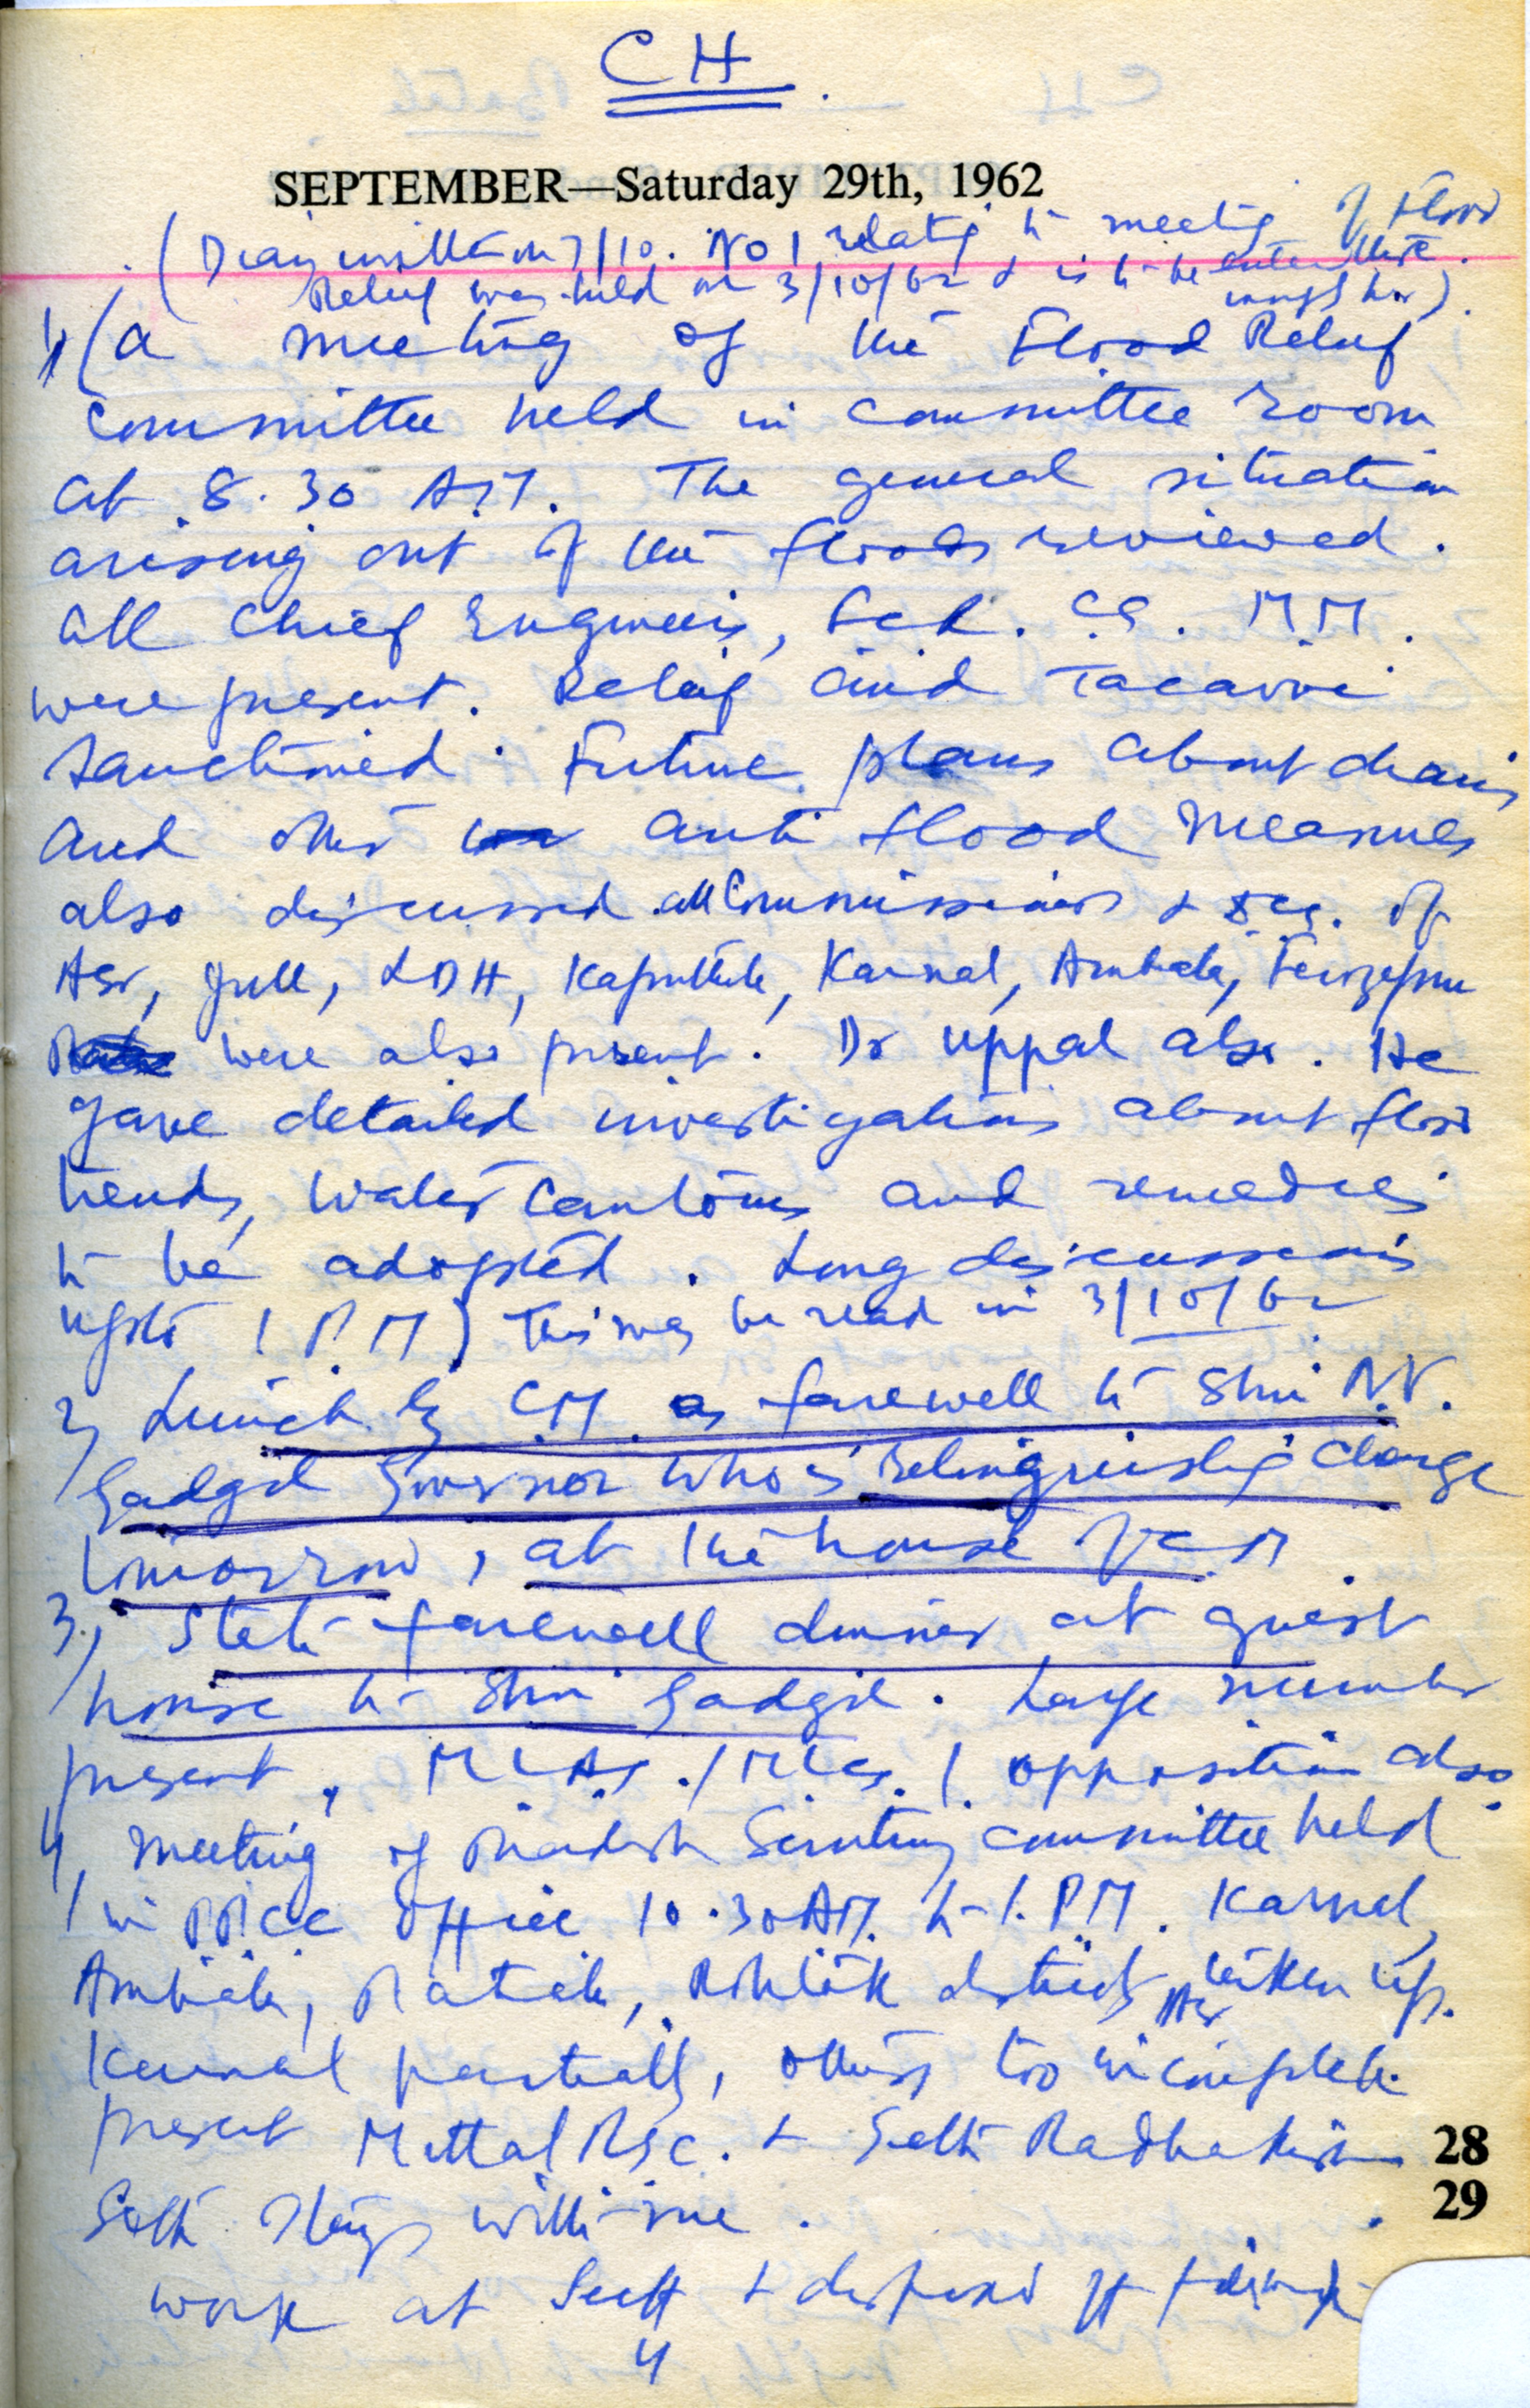 CH
SEPTEMBER—Saturday 29th, 1962
(Diary written on 7/10. No 1 relating to meeting of Flood
Relief was held on 3/10/62 & is to be entered there.
wrongly here).
1, (a meeting of the Flood Relief
Committee held in committee room
at 8.30 A.M. The general situation
arising out of the floods reviewed.
All Chief Engineers, C.S. M.M.
were present. Relief and Taccavi
sanctioned. Future plans about drains
and other anti flood measures
also discussed. all Commissioners & DCs. of
Asr, Jull, LDH, Kapurthala, Karnal, Ambala, Ferozepur
were also present. Dr Uppal also. He
gave detailed investigations about flood
trends, water contours and remedies
to be adopted. Long discussions
upto 1 P.M) This may be read in 3/10/62
2, Lunch by C.M. as farewell to Shri N.V.
Gadgil Governor who is relinquishing charge
tomorrow, at the house of C.M.
3, State farewell dinner at guest
house to Shri Gadgil. Large number
present, MLAs./MLCs./ opposition also.
4, Meeting of Pradesh Scrutiny committee held
in PPCC office 10.30 AM. to 1. P.M. Karnal,
Ambala, Patiala, Rohtak districts Asr taken up.
Karnal partially, others too incomplete.
present Mittal & Seth Radhakishan
Seth stays with me.
work at Sectt & disposal of
4
28
29